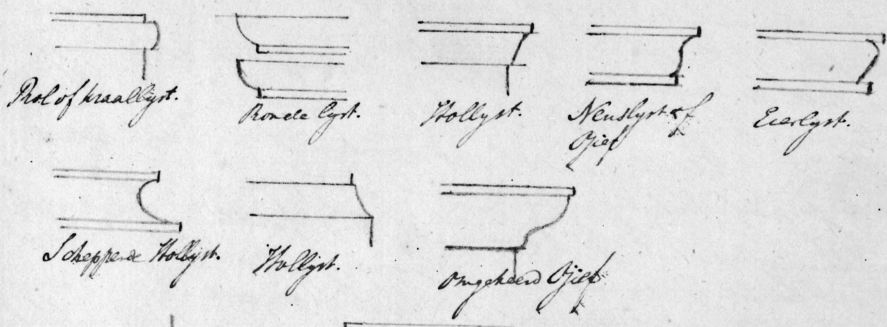 Rol of kraallyst.
Ronde lyst.
Hollyst.
Neuslyst of
Ojief
Eierlyst.
Scheppende Hollyst.
Hollyst.
omgekeerd Ojief